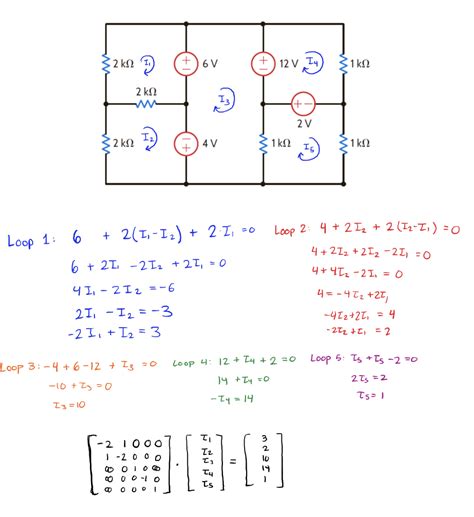 2 kΩ I₁ + − 6 V + − 12 V I₄ 1 kΩ
2 kΩ I₃ + −
2 V
2 kΩ I₂ + − 4 V 1 kΩ I₅ 1 kΩ
Loop 1: 6 + 2(I₁-I₂) + 2·I₁ =0
6 + 2I₁ -2I₂ + 2I₁ =0
4I₁ - 2I₂ = -6
2I₁ - I₂ = -3
-2I₁ + I₂ = 3
Loop 2: 4 + 2I₂ + 2(I₂-I₁) =0
4 + 2I₂ + 2I₂ - 2I₁ =0
4 + 4I₂ - 2I₁ = 0
4 = -4I₂ + 2I₁
-4I₂ + 2I₁ = 4
-2I₂ + I₁ = 2
Loop 3: -4 + 6 -12 + I₃ =0
-10 + I₃ =0
I₃ =10
Loop 4: 12 + I₄ + 2 =0
14 + I₄ =0
-I₄ = 14
Loop 5: I₅ + I₅ -2 =0
2I₅ =2
I₅ = 1
-2 1 0 0 0 I₁ 3
1 -2 0 0 0 I₂ 2
0 0 1 0 0 · I₃ = 10
0 0 0 -1 0 I₄ 14
0 0 0 0 1 I₅ 1